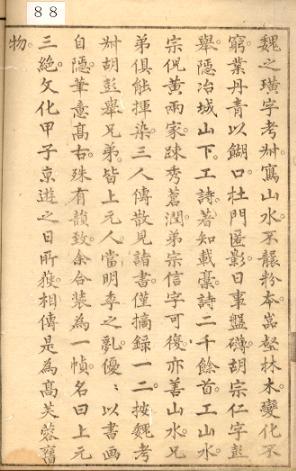 88
魏之璜字考叔寫山水不襲粉本嵓壑林木變化不
窮業丹青以餬口杜門匿影日事盤礴胡宗仁字彭
舉隱冶城山下。工詩。著知載齋詩二千餘首工山水
宗倪黃兩家。踈秀蒼潤。弟宗信字可復亦善山水兄
弟俱能揮染三人傳散見諸書僅摘録一二。按魏考
叔胡彭舉兄弟。皆上元人當明季之亂。優〻以書画
自隱筆意高古。殊有韻致余合裝為一幀名曰上元
三絶。文化甲子京遊之日所獲。相傳是為高芙蓉舊
物。